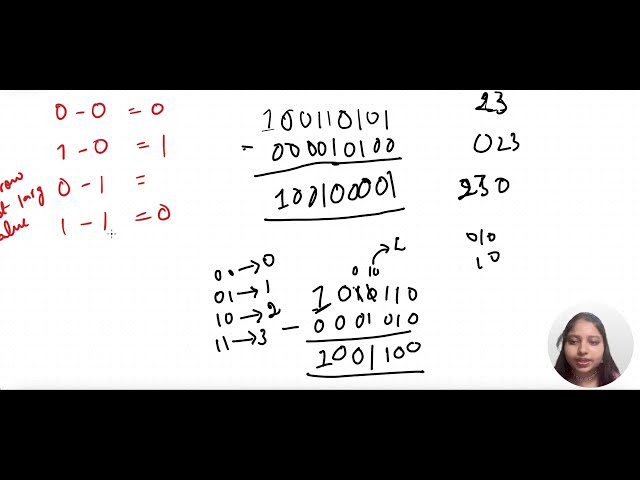 0 - 0 = 0
1 - 0 = 1
row
t larg
0 - 1 =
alue
1 - 1 = 0
100110101
- 000010100
100100001
23
023
230
010
10
00 → 0
01 → 1
10 → 2
11 → 3
0 10
1010110
- 0001010
1001100